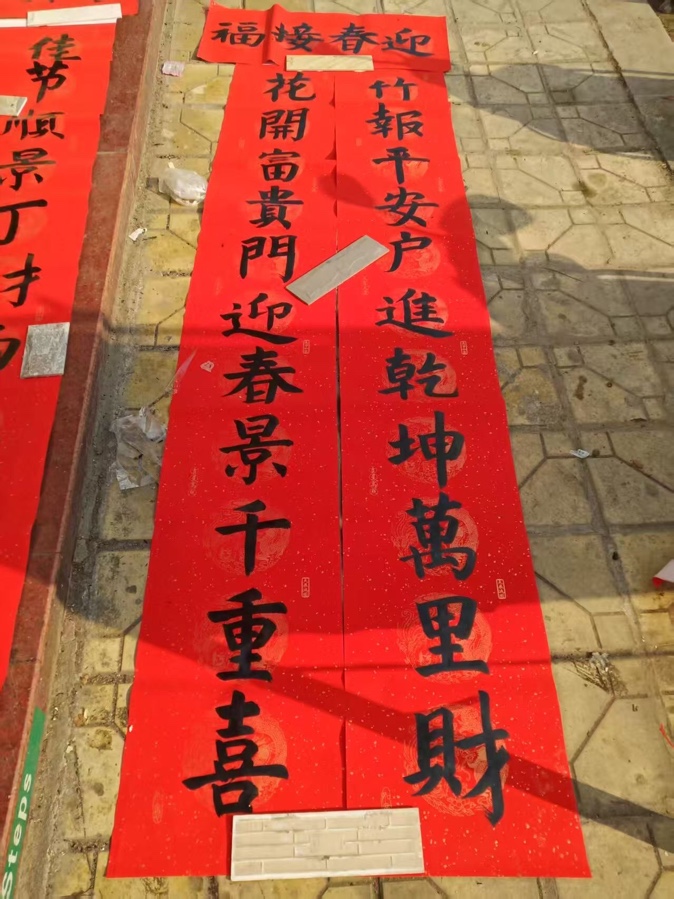 迎春接福
竹報平安户進乾坤萬里財
花開富貴門迎春景千重喜
佳节顺景丁财
Steps